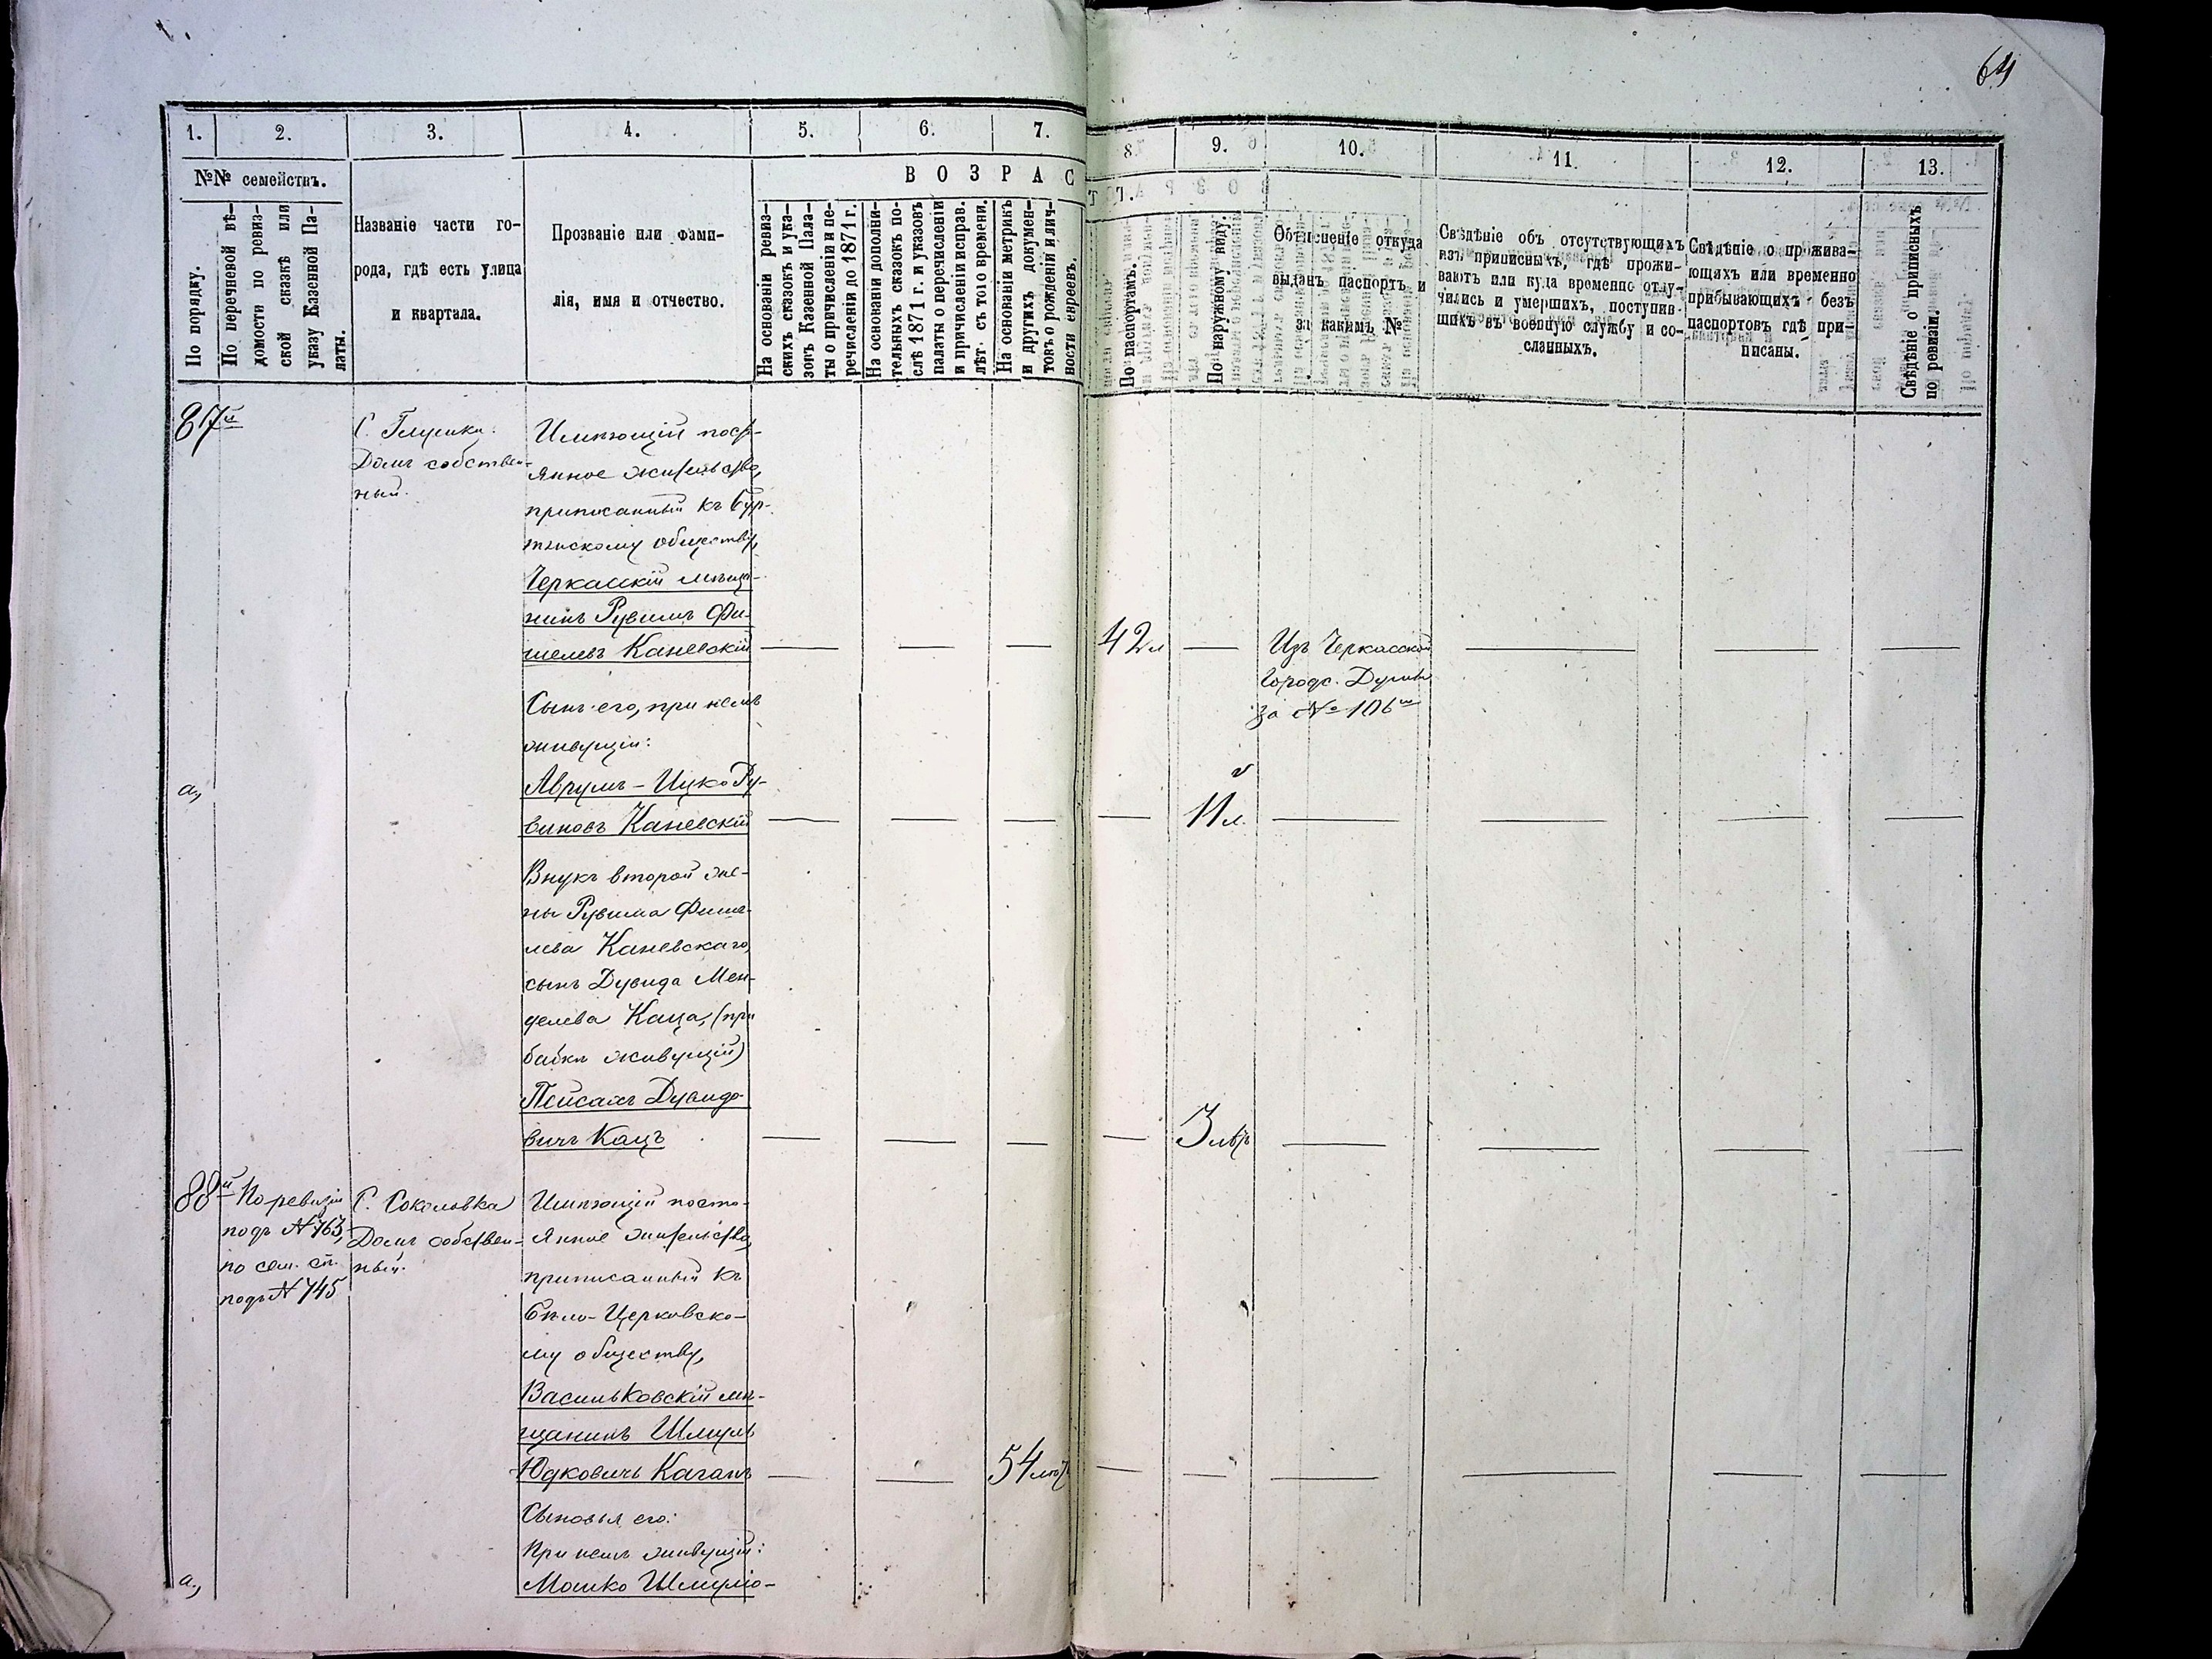 64
1. 2. 3. 4. 5. 6. 7. 8. 9. 10. 11. 12. 13.
№№ семействъ.
ВОЗРАСТЪ.
По порядку.
По перечневой вѣ-
домости по ревиз-
ской сказкѣ или
указу Казенной Па-
латы.
Названіе части го-
рода, гдѣ есть улица
и квартала.
Прозваніе или фами-
лія, имя и отчество.
На основаніи ревиз-
скихъ сказокъ и ука-
зовъ Казенной Пала-
ты о причисленіи и пе-
речисленіи до 1871 г.
На основаніи дополни-
тельныхъ сказокъ по-
слѣ 1871 г. и указовъ
палаты о перечисленіи
и причисленіи исправ.
лѣт. съ того времени.
На основаніи метрикъ
и другихъ докумен-
товъ о рожденіи и лич-
ности евреевъ.
По паспортамъ.
По наружному виду.
Объясненіе откуда
выданъ паспортъ и
за какимъ №
Свѣдѣніе объ отсутствующихъ
изъ приписныхъ, гдѣ прожи-
ваютъ или куда временно отлу-
чились и умершихъ, поступив-
шихъ въ военную службу и со-
сланныхъ.
Свѣдѣніе о прожива-
ющихъ или временно
прибывающихъ безъ
паспортовъ гдѣ при-
писаны.
Свѣдѣніе о приписныхъ
по ревизіи.
87й
Домъ собствен-
ный.
Имѣющій пост-
янное жительство,
приписанный къ
обществу,
Черкасскій мѣща-
нинъ Рувимъ Фи-
шелевъ Каневскій — — — 42 л — Изъ Черкасской — — —
Городс. Думы
за № 106м
Сынъ его, при немъ
живущій:
а, Аврумъ-Ицко Ру-
виновъ Каневскій — — — — 11 л. — — — —
Внукъ второй же-
ны Рувима Фише-
лева Каневскаго,
сынъ Дувида Мен-
делева Каца, (при
бабкѣ живущій)
Пейсахъ Дувидо-
вичъ Кацъ — — — — 3 лѣтъ — — — —
88й По ревизіи
подъ № 763,
по сем. сп.
подъ № 745
С. Соколовка
Домъ собствен-
ный.
Имѣющій посто-
янное жительство,
приписанный къ
Бѣло-Церковско-
му обществу,
Васильковскій мѣ-
щанинъ Шмуль
Юдковичъ Каганъ — — 54 лѣтъ — — — — — —
Сыновья его:
При немъ живущій:
а, Мошко Шмуліо-